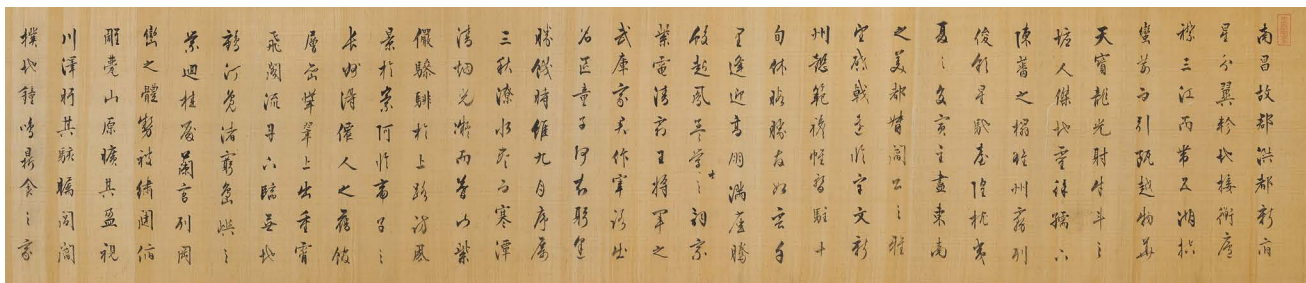 南昌故郡洪都新府
星分翼軫地接衡廬
襟三江而帶五湖控
蠻荊而引甌越物華
天寶龍光射牛斗之
墟人傑地靈徐孺下
陳蕃之榻雄州霧列
俊彩星馳臺隍枕夷
夏之交賓主盡東南
之美都督閻公之雅
望棨戟遙臨宇文新
州懿範襜帷暫駐十
旬休暇勝友如雲千
里逢迎高朋滿座騰
蛟起鳳孟學士之詞宗
紫電清霜王將軍之
武庫家君作宰路出
名區童子何知躬逢
勝餞時維九月序屬
三秋潦水盡而寒潭
清烟光凝而暮山紫
儼驂騑於上路訪風
景於崇阿臨帝子之
長洲得僊人之舊館
層巒聳翠上出重霄
飛閣流丹下臨無地
鶴汀鳧渚窮島嶼之
縈迴桂殿蘭宮列岡
巒之體勢披繡闥俯
雕甍山原曠其盈視
川澤盱其駭矚閭閻
撲地鐘鳴鼎食之家